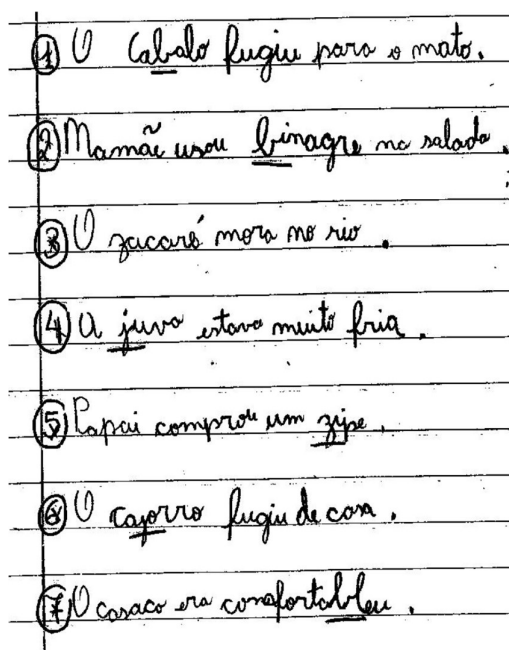 1 O Cabalo fugiu para o mato.
2 Mamãe usou binagre na salada.
3 O zacaré mora no rio.
4 A juva estava muito fria.
5 Papai comprou um zipe.
6 O cajorro fugiu de casa.
7 O casaco era comfortableu.